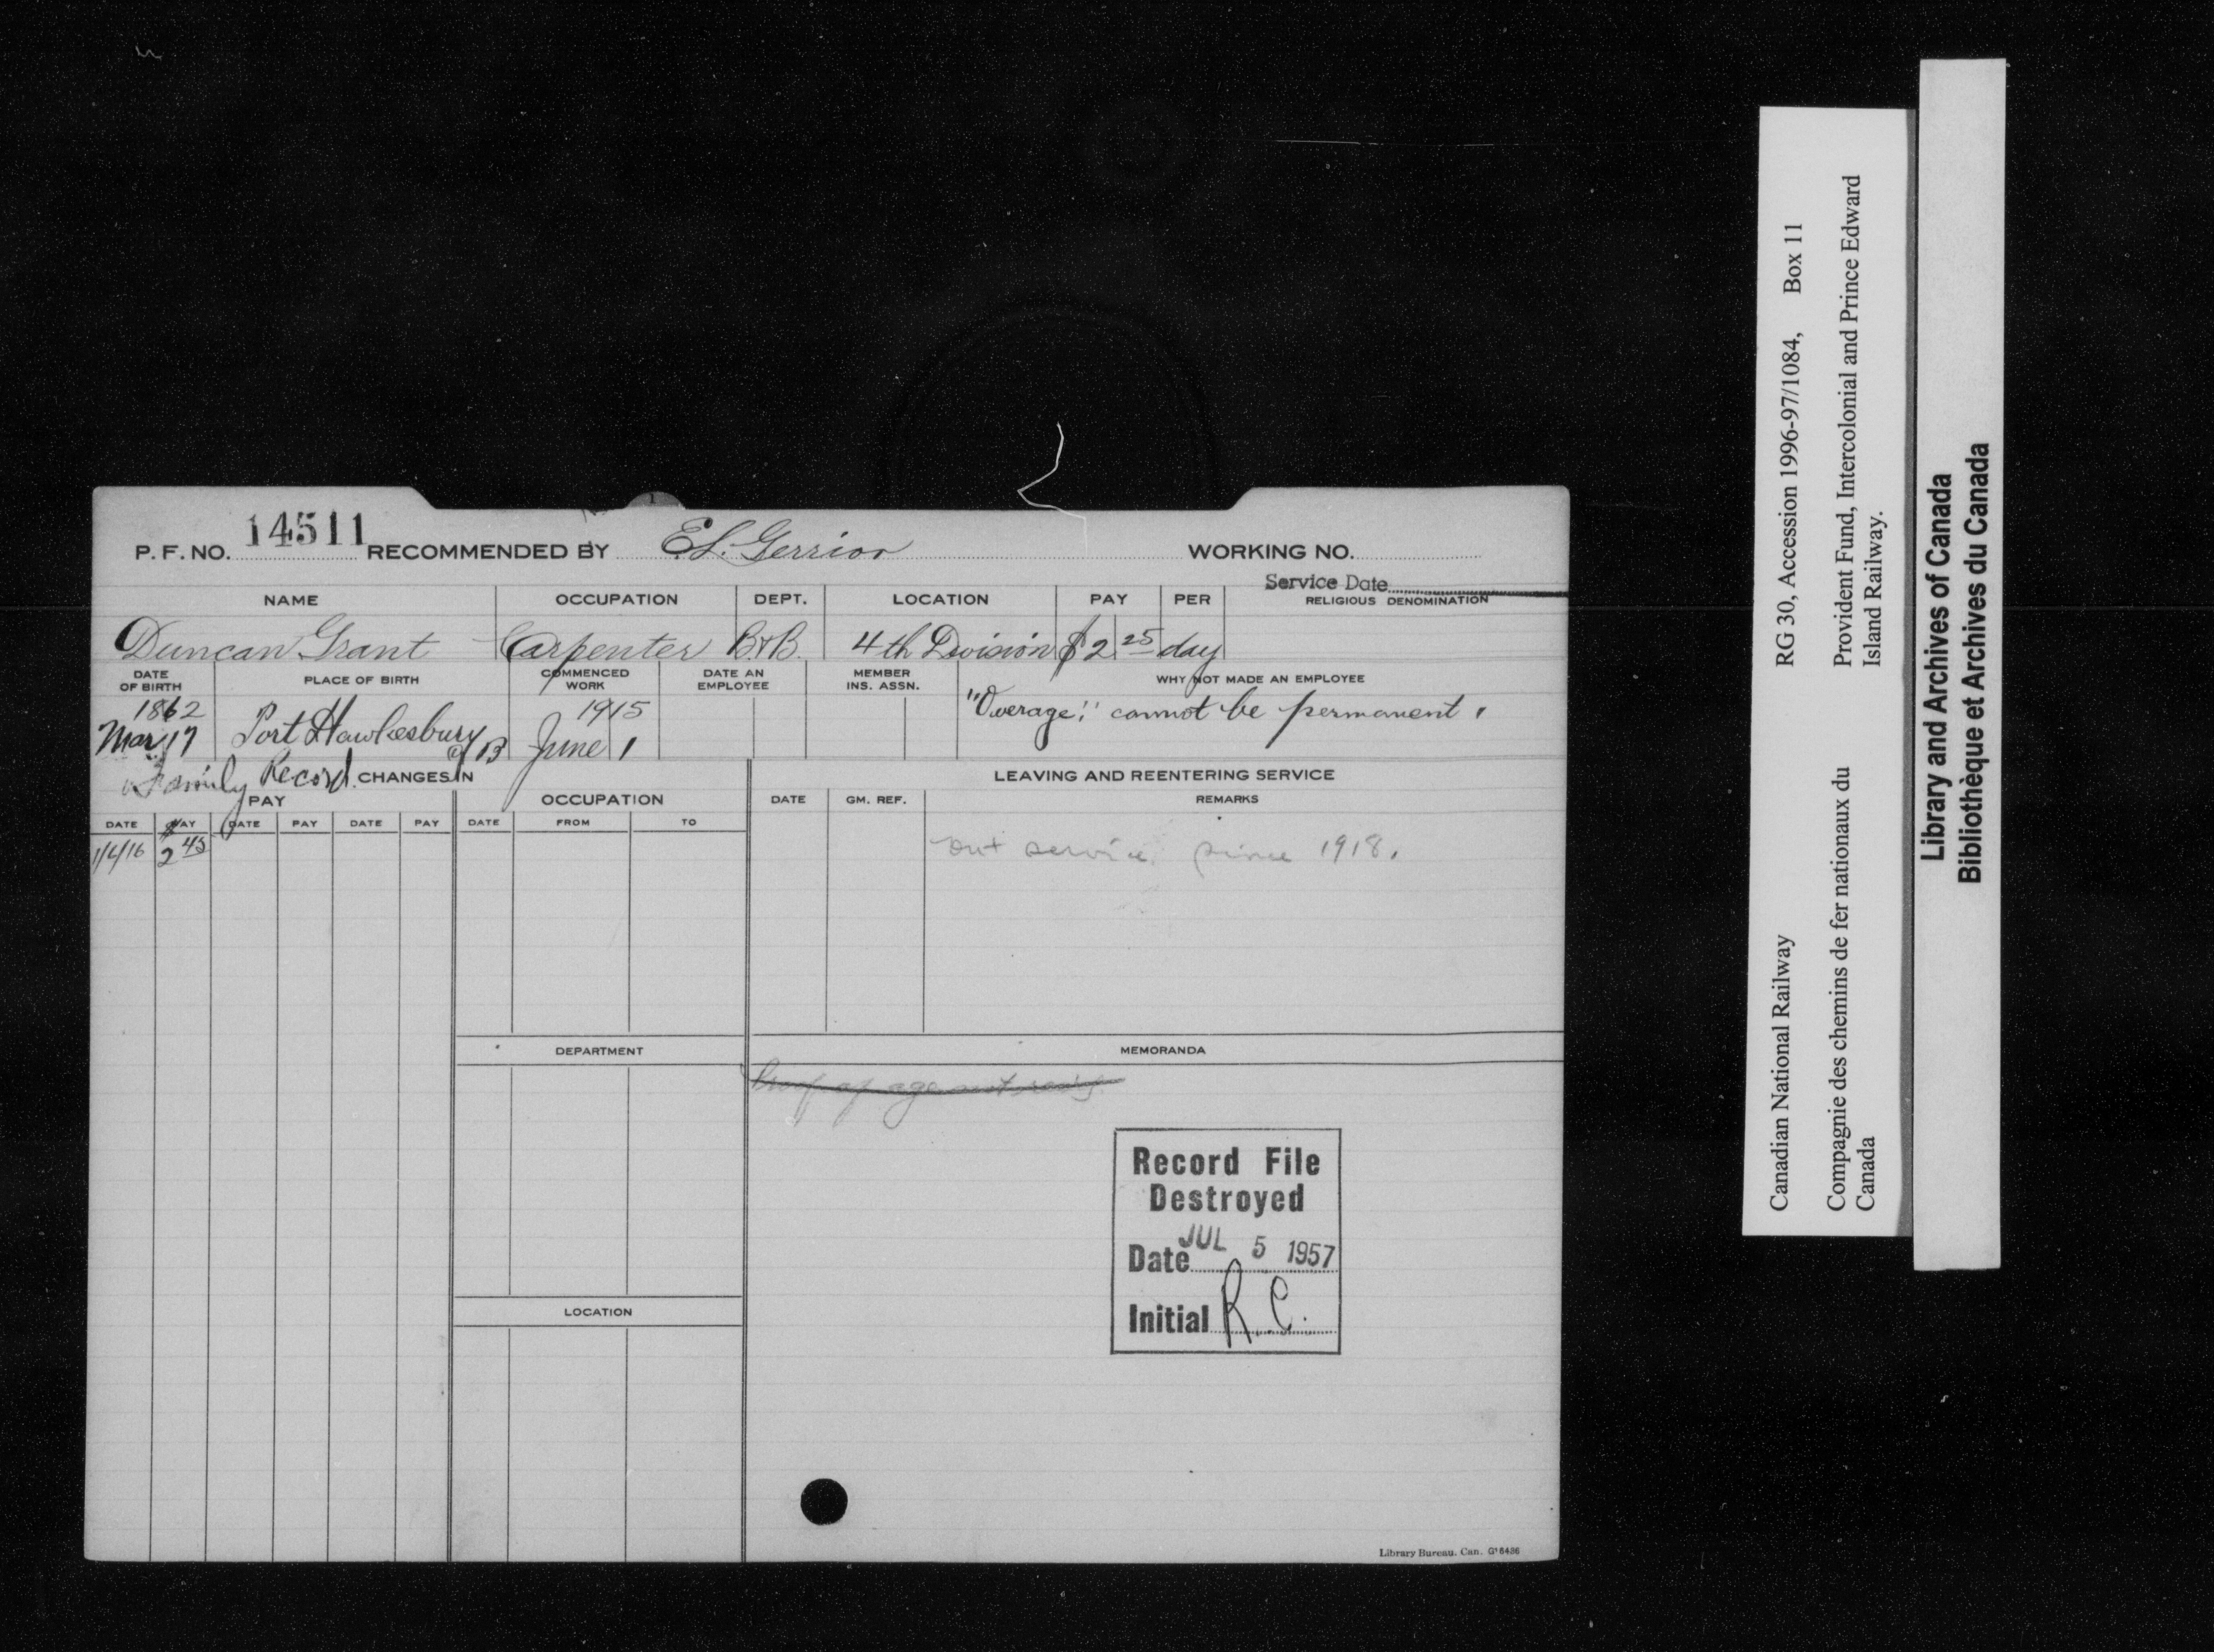 P. F. NO. 14511 RECOMMENDED BY E. L. Gerrior WORKING NO.
Service Date
NAME OCCUPATION DEPT. LOCATION PAY PER RELIGIOUS DENOMINATION
Duncan Grant Carpenter B.&B. 4th Division $2 25 day
DATE OF BIRTH PLACE OF BIRTH COMMENCED WORK DATE AN EMPLOYEE MEMBER INS. ASSN. WHY NOT MADE AN EMPLOYEE
1862 1915 "Overage." cannot be permanent.
Mar 17 Port Hawkesbury CB June 1
Family Record. CHANGES IN LEAVING AND REENTERING SERVICE
PAY OCCUPATION DATE GM. REF. REMARKS
DATE PAY DATE PAY DATE PAY DATE FROM TO
1/4/16 2 45 out service since 1918.
DEPARTMENT MEMORANDA
Proof of age not
Record File
Destroyed
Date JUL 5 1957
Initial R.C.
LOCATION
Library Bureau. Can. G16436
Canadian National Railway RG 30, Accession 1996-97/1084, Box 11
Compagnie des chemins de fer nationaux du Provident Fund, Intercolonial and Prince Edward
Canada Island Railway.
Library and Archives of Canada
Bibliothèque et Archives du Canada